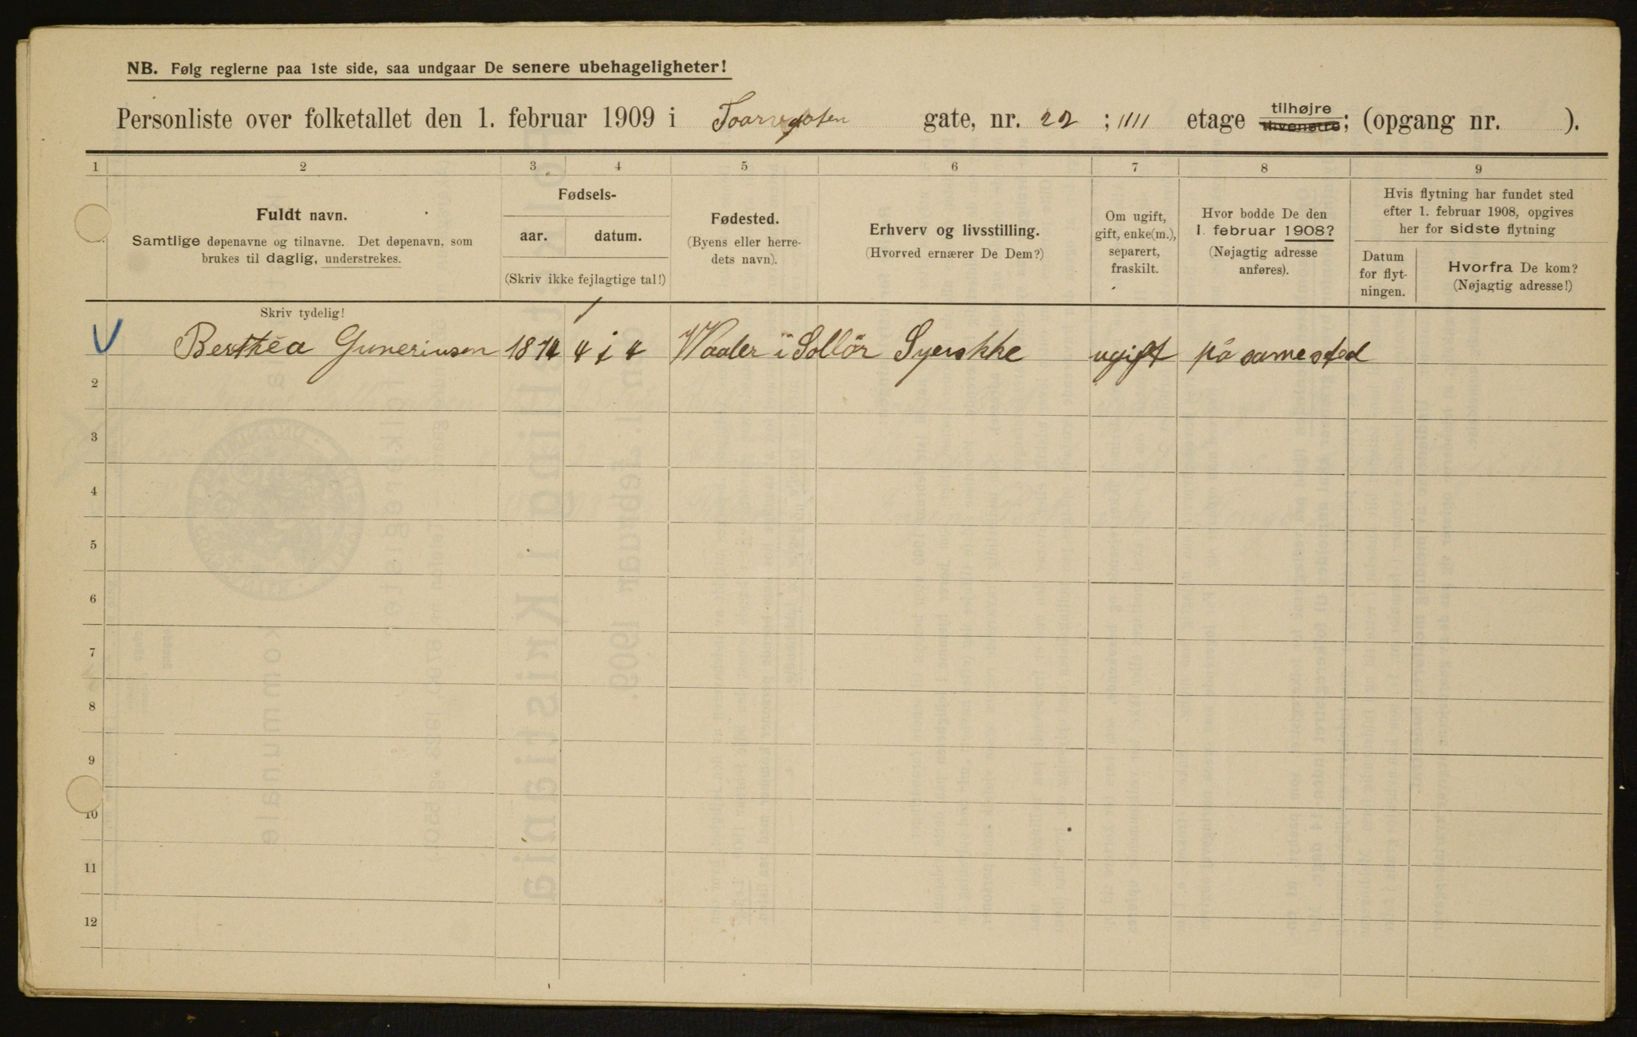 NB. Følg reglerne paa 1ste side, saa undgaar De senere ubehageligheter!
Personliste over folketallet den 1. februar 1909 i Toarvgaten gate, nr. 22 ; 1111 etage tilhøjre tilvenstre; (opgang nr. ).
1 2 3 4 5 6 7 8 9
Fuldt navn.
Samtlige døpenavne og tilnavne. Det døpenavn, som
brukes til daglig, understrekes.
Fødsels-
aar. datum.
(Skriv ikke fejlagtige tal!)
Fødested.
(Byens eller herre-
dets navn).
Erhverv og livsstilling.
(Hvorved ernærer De Dem?)
Om ugift,
gift, enke(m.),
separert,
fraskilt.
Hvor bodde De den
1. februar 1908?
(Nøjagtig adresse
anføres).
Hvis flytning har fundet sted
efter 1. februar 1908, opgives
her for sidste flytning
Datum
for flyt-
ningen.
Hvorfra De kom?
(Nøjagtig adresse!)
Skriv tydelig!
Berthéa Guneriusen 1874 4 Vaaler i Sollör Syerskke ugift på samested
2
3
4
5
6
7
8
9
10
11
12